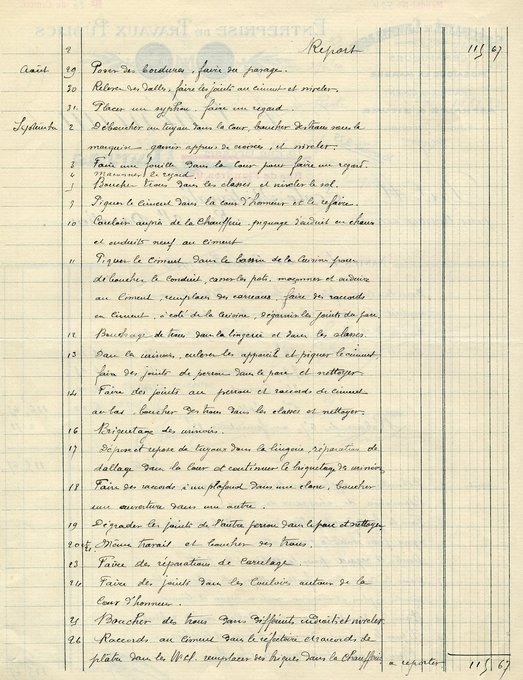 2 Report 115 67
Août 29 Poser des bordures, faire du pavage.
30 Relever des dalles, faire les joints au ciment et niveler.
31 Placer un syphon, faire un regard.
Septembre 2 Déboucher un tuyau dans la cour, boucher des trous sous la
marquise garnir appuis de croisées, et niveler.
3 Faire une fouille dans la cour pour faire un regard.
4 Maçonner le regard.
5 Boucher trous dans les classes et niveler le sol.
9 Piquer le ciment dans la cour d'honneur et le refaire.
10 Couloir auprès de la Chaufferie, piquage d'enduit en chaux
et enduits neuf au ciment
11 Piquer le ciment dans le bassin de la cuisine pour
déboucher le conduit, casser les pots, maçonner et enduire
au ciment, remplacer des carreaux, faire des raccords
en ciment, à côté de la cuisine, dégarnir les joints du parc.
12 Bouchage de trous dans la lingerie et dans les classes.
13 Dans les urinoirs, enlever les appareils et piquer le ciment
faire des joints de perron dans le parc et nettoyer.
14 Faire des joints au perron et raccords de ciment
au bas, boucher des trous dans les classes et nettoyer.
16 Briquetage des urinoirs.
17 Dépose et repose de tuyaux dans la lingerie, réparation de
dallage dans la cour et continuer le briquetage des urinoirs
18 Faire des raccords à un plafond dans une classe, boucher
une ouverture dans une autre.
19 Dégrader les joints de l'autre perron dans le parc et nettoyer.
20 et 21 Même travail et boucher des trous.
23 Faire des réparations de carrelage.
24 Faire des joints dans les couloirs autour de la
Cour d'honneur.
25 Boucher des trous dans différents endroits et niveler
26 Raccords au ciment dans le réfectoire et raccords de
plâtre dans les W.Cl. remplacer des briques dans la Chaufferie a reporter 115 67